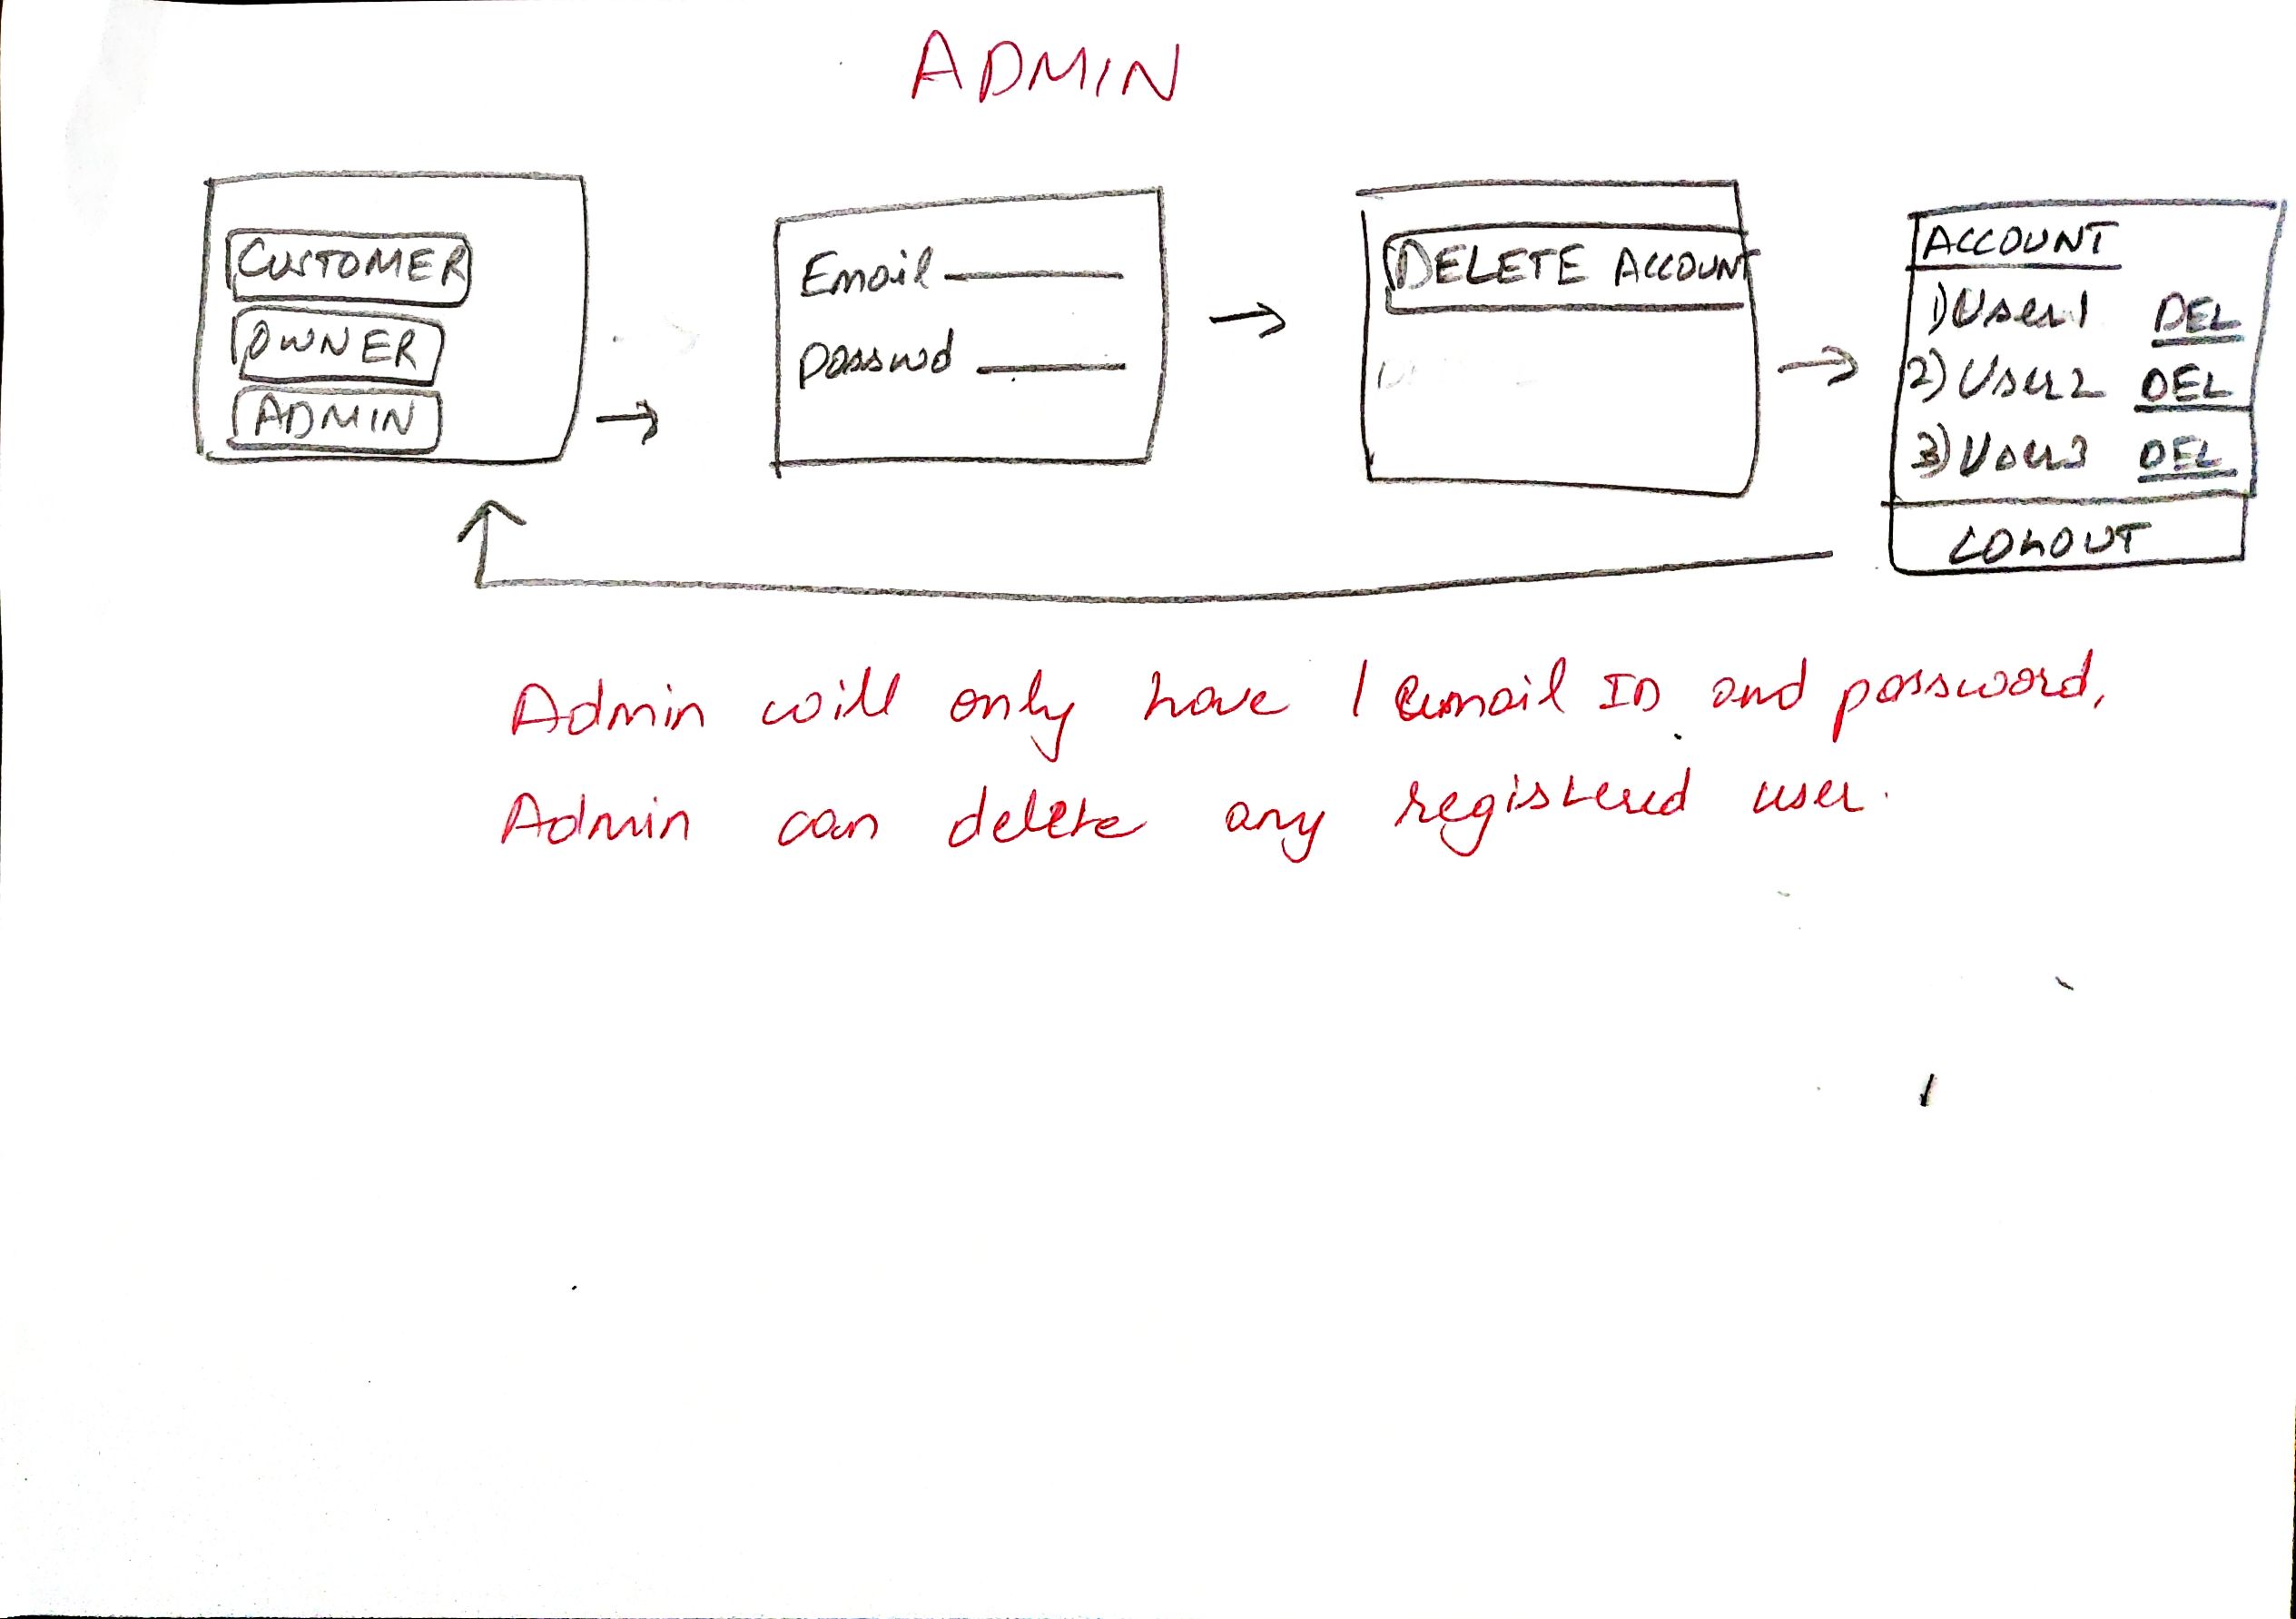 ADMIN
CUSTOMER
OWNER
ADMIN
Email
passwd
DELETE ACCOUNT
ACCOUNT
1) User1 DEL
2) User2 DEL
3) User3 DEL
LOGOUT
Admin will only have 1 email ID and password.
Admin can delete any registered user.